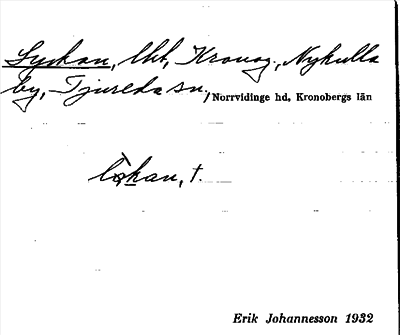 Lyckan, lht, Kronog., Nykulla
by, Tjureda sn., Norrvidinge hd, Kronobergs län
t.
Erik Johannesson 1932